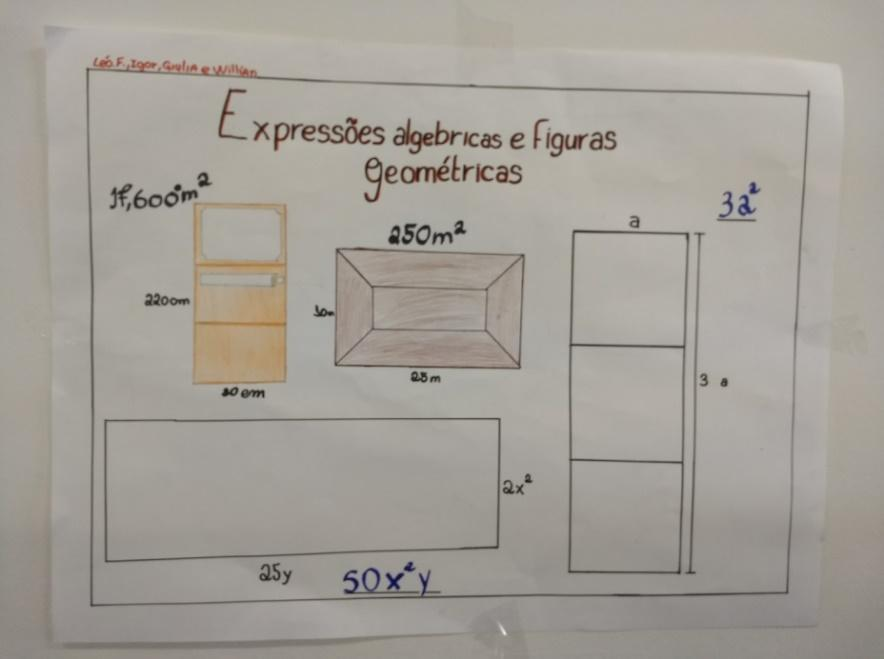 Léo.F., Igor, Giulia e Willian
Expressões algebricas e figuras
geométricas
17,600m²
220cm
80cm
250m²
10m
25m
a
3a²
3 a
2x²
25y
50x²y